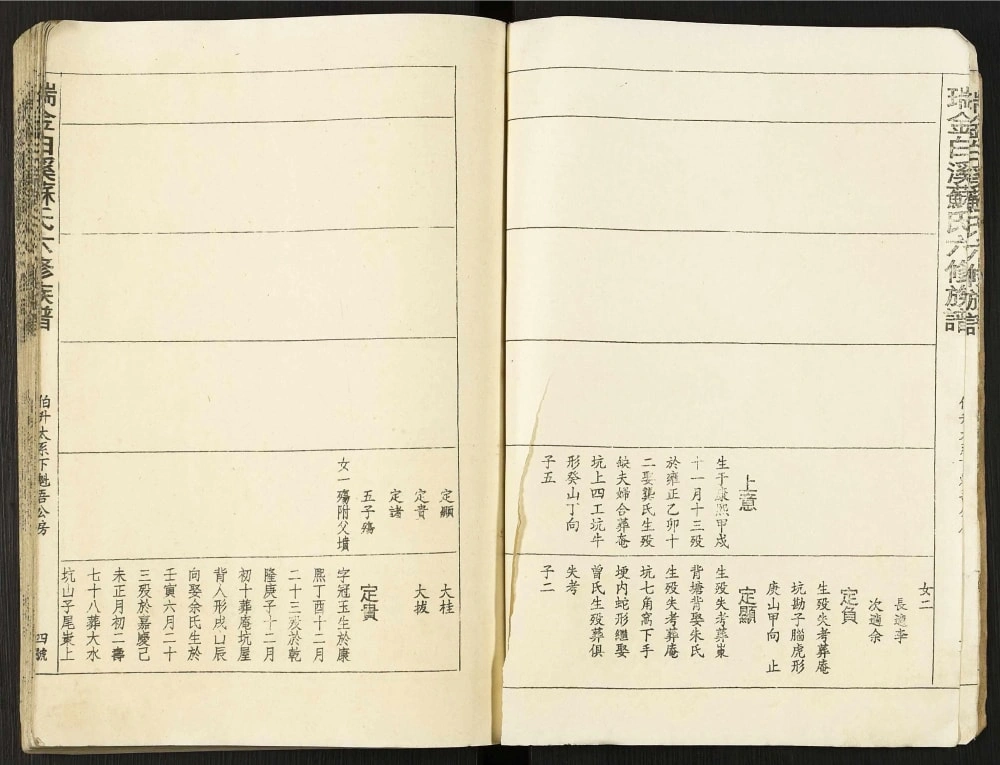 瑞金白溪蘇氏六修族譜
上意
生于康熙甲戌
十一月十三歿
於雍正乙卯十
二娶龔氏生歿
缺夫婦合葬菴
坑上四工坑牛
形癸山丁向
子五
女二
長適李
次適余
定負
生歿失考葬庵
坑勘子腦虎形
庚山甲向 止
定顯
生歿失考葬東
背塘背娶朱氏
生歿失考葬庵
坑七角窩下手
埂内蛇形繼娶
曾氏生歿葬俱
失考
子二
定顯
定貴
定諸
五子殤
女一殤附父墳
大桂
大拔
定貴
字冠玉生於康
熙丁酉十二月
二十三歿於乾
隆庚子十二月
初十葬庵坑屋
背人形戌山辰
向娶余氏生於
壬寅六月二十
三歿於嘉慶己
未正月初二壽
七十八葬大水
坑山子尾東上
瑞金白溪蘇氏六修族譜
伯升太系下魁吾公房
四號